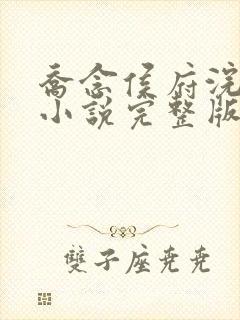 喬念侯府浣
小說完整版
雙子座堯堯